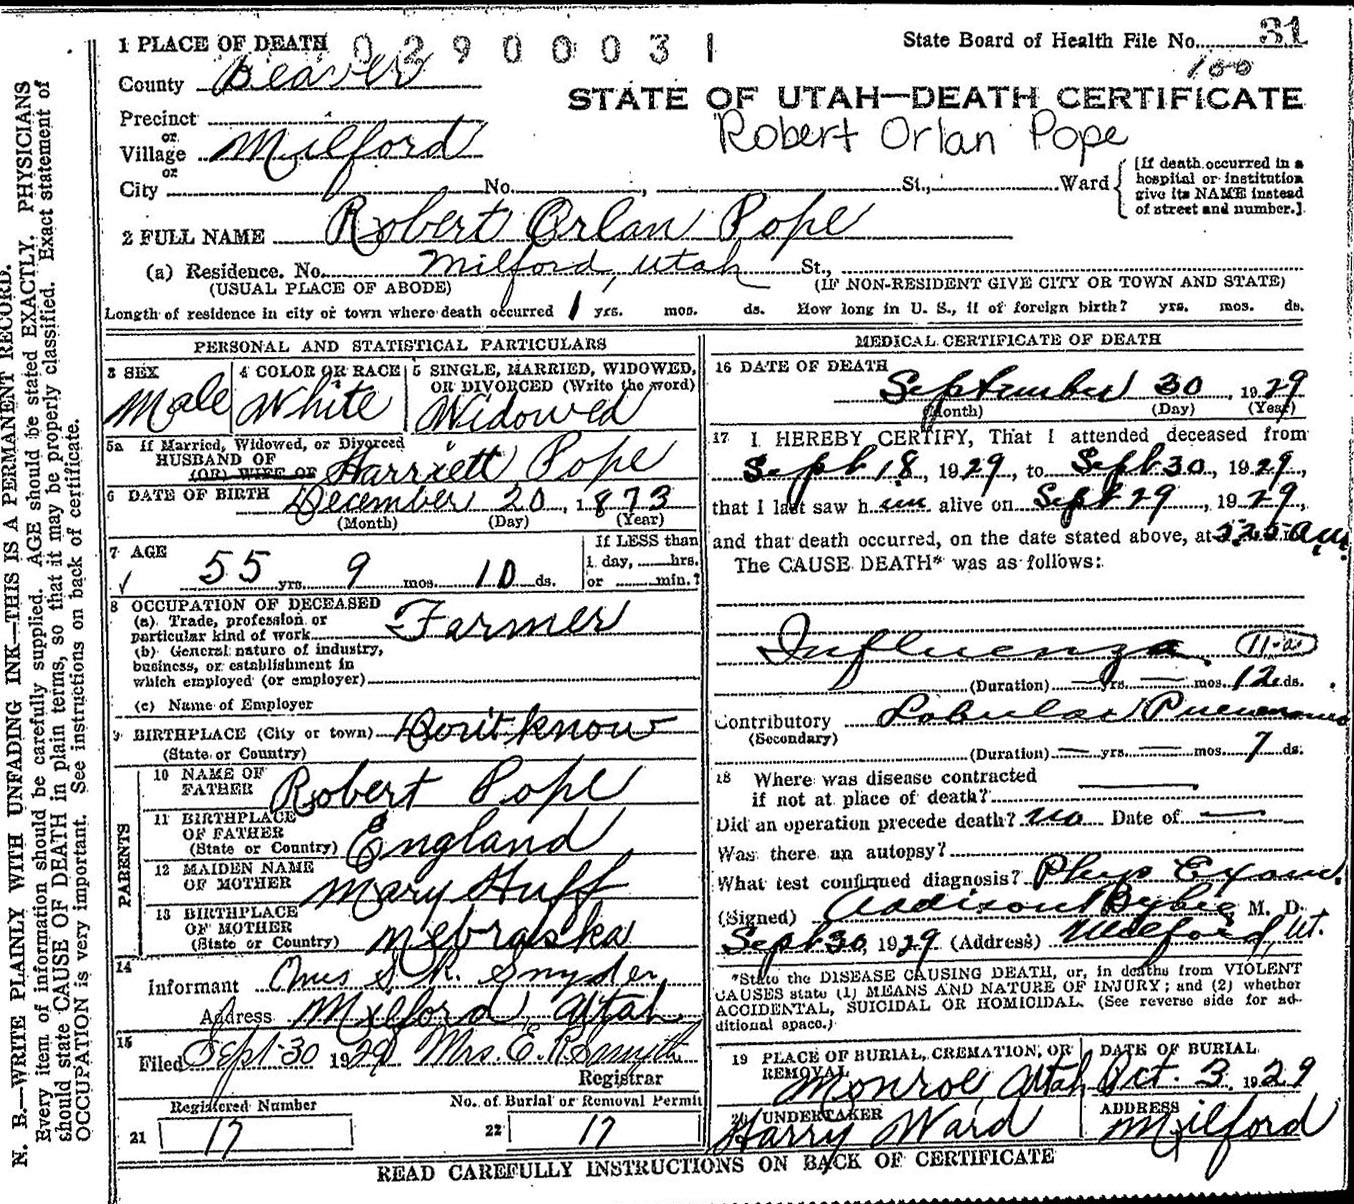 1 PLACE OF DEATH 02900031 State Board of Health File No. 31
County Beaver 100
STATE OF UTAH—DEATH CERTIFICATE
Precinct
or
Village Milford Robert Orlan Pope
or
City No. , St., Ward [If death occurred in a hospital or institution give its NAME instead of street and number.]
2 FULL NAME Robert Orlan Pope
(a) Residence. No. Milford, Utah St.,
(USUAL PLACE OF ABODE) (IF NON-RESIDENT GIVE CITY OR TOWN AND STATE)
Length of residence in city or town where death occurred 1 yrs. mos. ds. How long in U. S., if of foreign birth? yrs. mos. ds.
PERSONAL AND STATISTICAL PARTICULARS
3 SEX Male
4 COLOR OR RACE White
5 SINGLE, MARRIED, WIDOWED, OR DIVORCED (Write the word) Widowed
5a If Married, Widowed, or Divorced
HUSBAND OF
(OR) WIFE OF Harriett Pope
6 DATE OF BIRTH December 20, 1873
(Month) (Day) (Year)
7 AGE 55 yrs. 9 mos. 10 ds.
If LESS than
1 day, hrs.
or min.?
8 OCCUPATION OF DECEASED
(a) Trade, profession or
particular kind of work Farmer
(b) General nature of industry,
business, or establishment in
which employed (or employer)
(c) Name of Employer
9 BIRTHPLACE (City or town) Don't know
(State or Country)
PARENTS
10 NAME OF FATHER Robert Pope
11 BIRTHPLACE OF FATHER (State or Country) England
12 MAIDEN NAME OF MOTHER Mary Huff
13 BIRTHPLACE OF MOTHER (State or Country) Nebraska
14
Informant S. R. Snyder
Address Milford, Utah
15
Filed Sept 30 1929 Mrs. E. R. Smith
Registrar
Registered Number No. of Burial or Removal Permit
21 17 22 17
MEDICAL CERTIFICATE OF DEATH
16 DATE OF DEATH
September 30, 1929
(Month) (Day) (Year)
17 I HEREBY CERTIFY, That I attended deceased from
Sept 18, 1929, to Sept 30, 1929,
that I last saw him alive on Sept 29, 1929,
and that death occurred, on the date stated above, at a.m.
The CAUSE DEATH* was as follows:
Influenza 11-a
(Duration) — yrs. — mos. 12 ds.
Contributory Lobular Pneumonia
(Secondary)
(Duration) — yrs. — mos. 7 ds.
18 Where was disease contracted
if not at place of death?
Did an operation precede death? no Date of —
Was there an autopsy?
What test confirmed diagnosis? Phys Exam.
(Signed) Addison Bybee M. D.
Sept 30, 1929 (Address) Milford, Ut.
*State the DISEASE CAUSING DEATH, or, in deaths from VIOLENT
CAUSES state (1) MEANS AND NATURE OF INJURY; and (2) whether
ACCIDENTAL, SUICIDAL OR HOMICIDAL. (See reverse side for ad-
ditional space.)
19 PLACE OF BURIAL, CREMATION, OR REMOVAL Monroe, Utah
DATE OF BURIAL Oct. 3, 1929
20 UNDERTAKER Harry Ward
ADDRESS Milford
READ CAREFULLY INSTRUCTIONS ON BACK OF CERTIFICATE
N. B.—WRITE PLAINLY WITH UNFADING INK—THIS IS A PERMANENT RECORD.
Every item of information should be carefully supplied. AGE should be stated EXACTLY. PHYSICIANS
should state CAUSE OF DEATH in plain terms, so that it may be properly classified. Exact statement of
OCCUPATION is very important. See instructions on back of certificate.